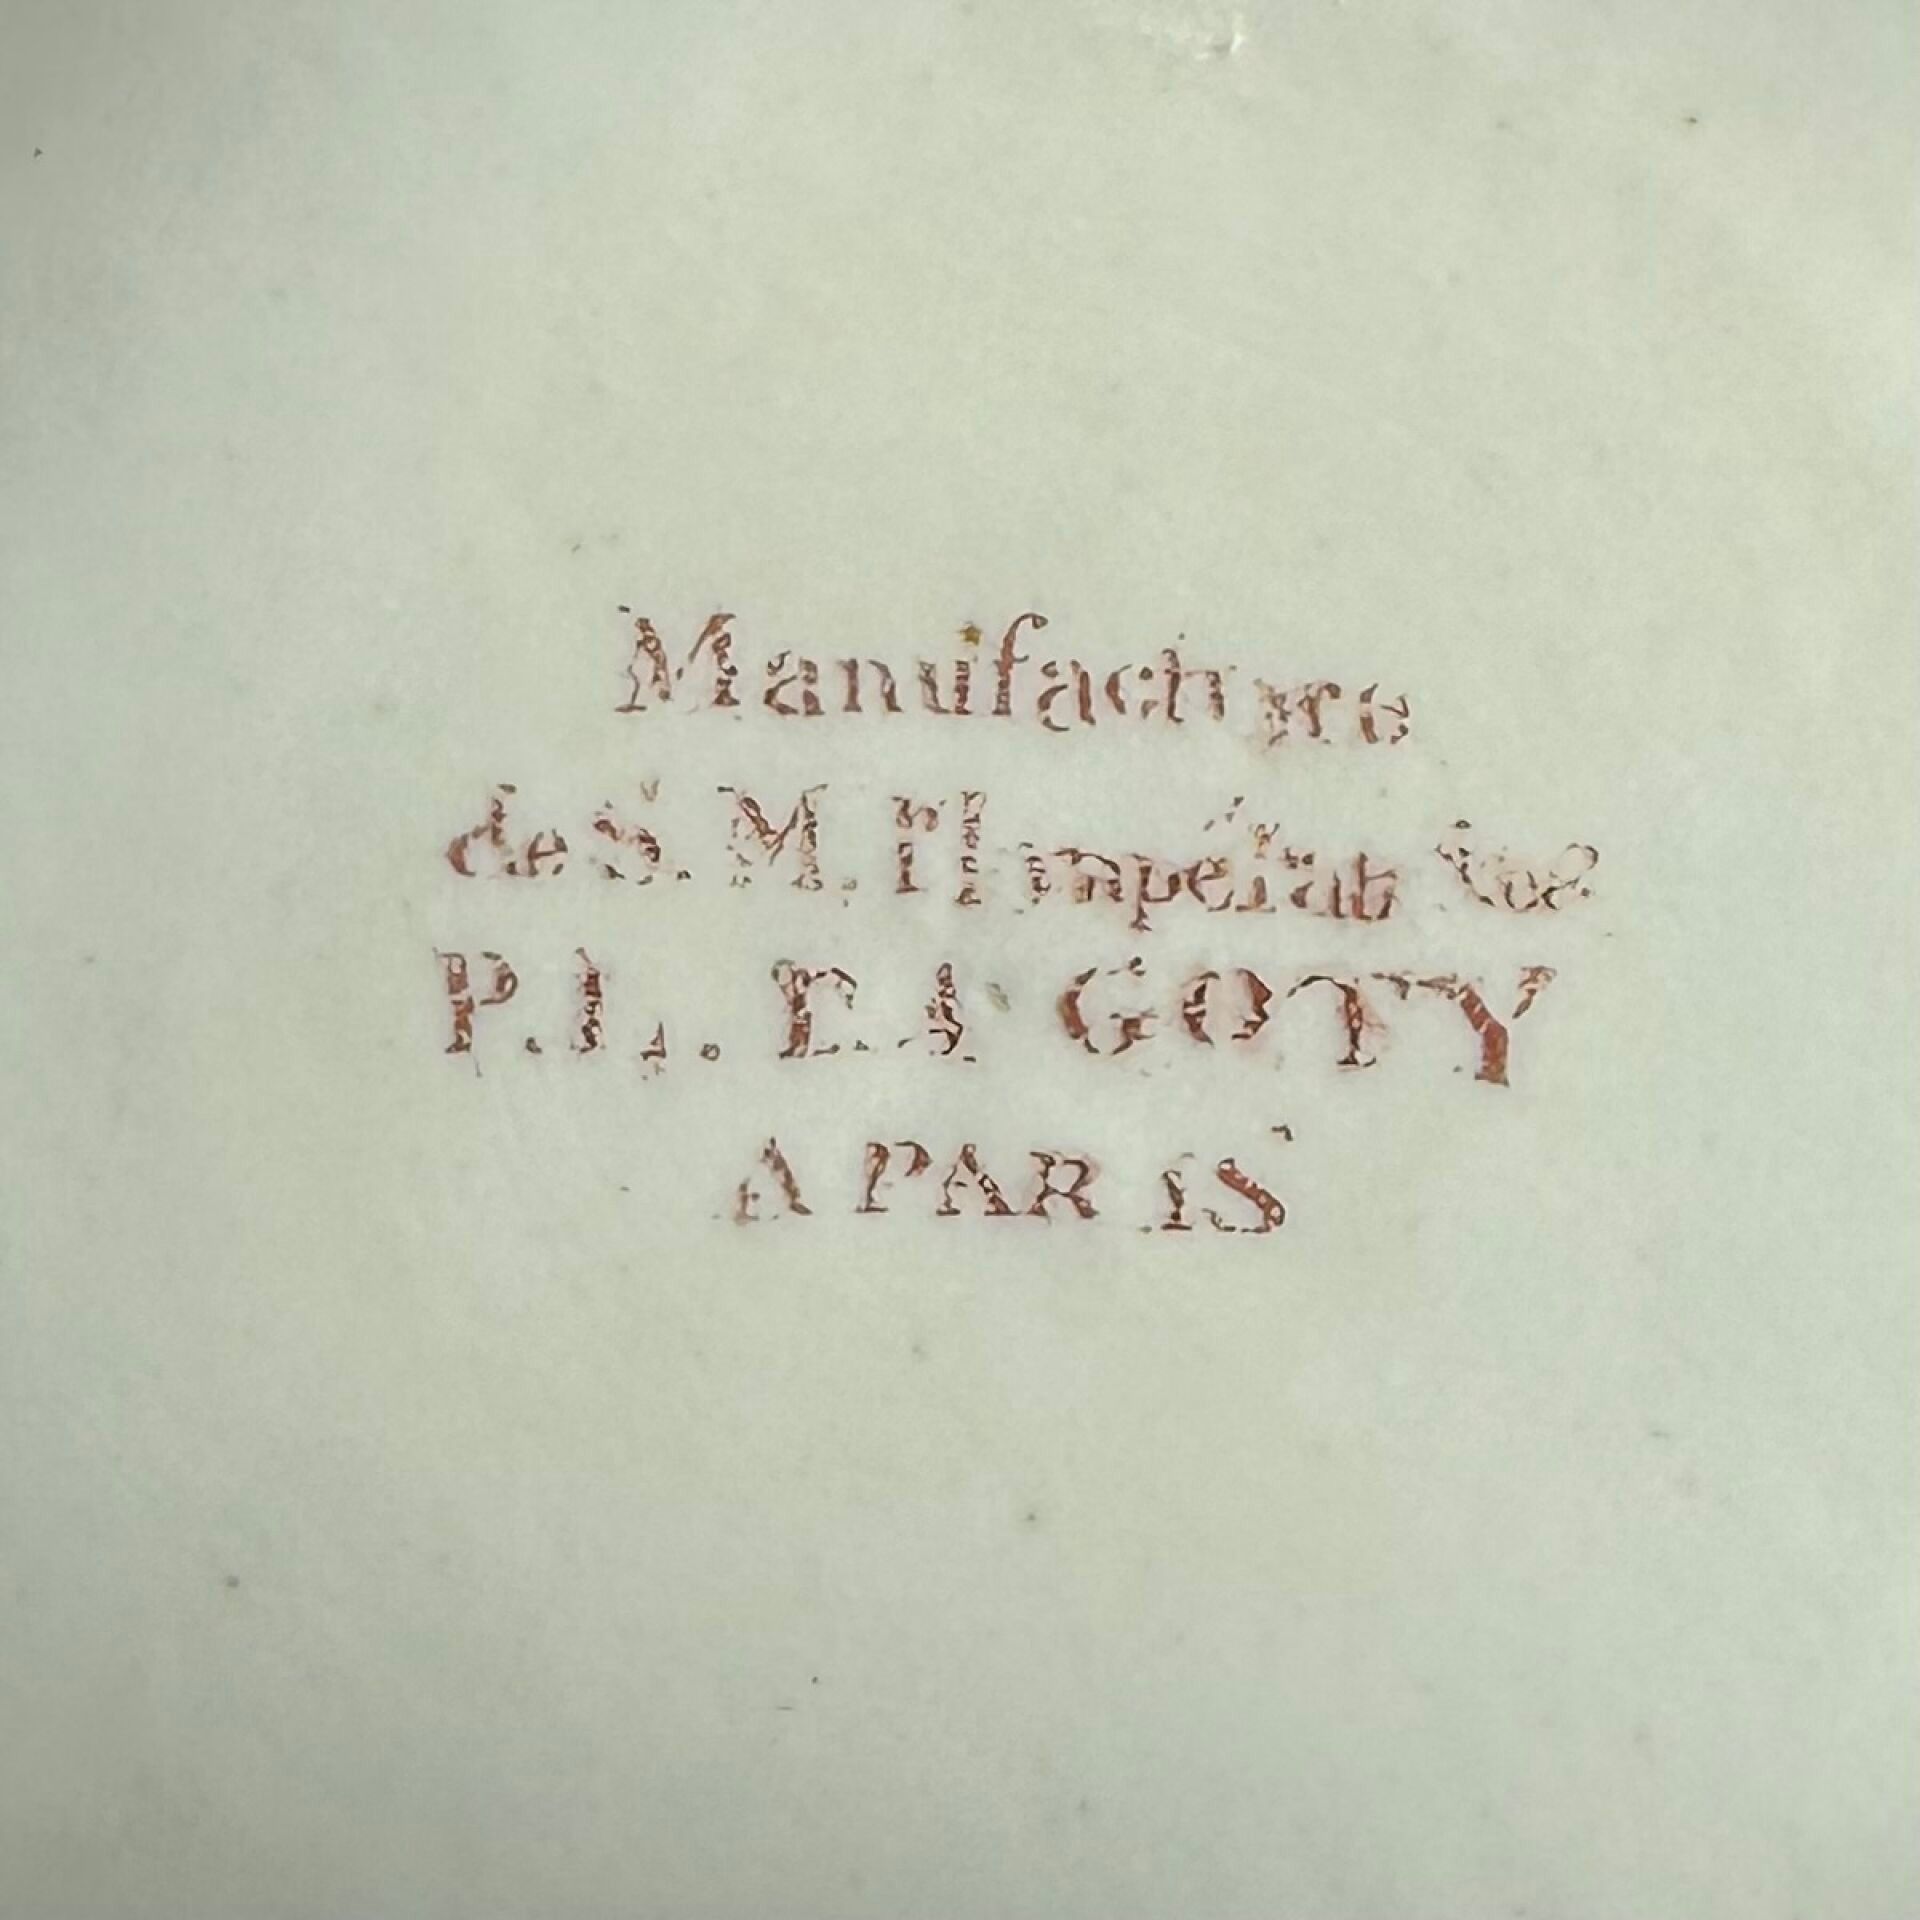 Manufacture
de S. M. l'Impératrice
P. L. DAGOTY
A PARIS